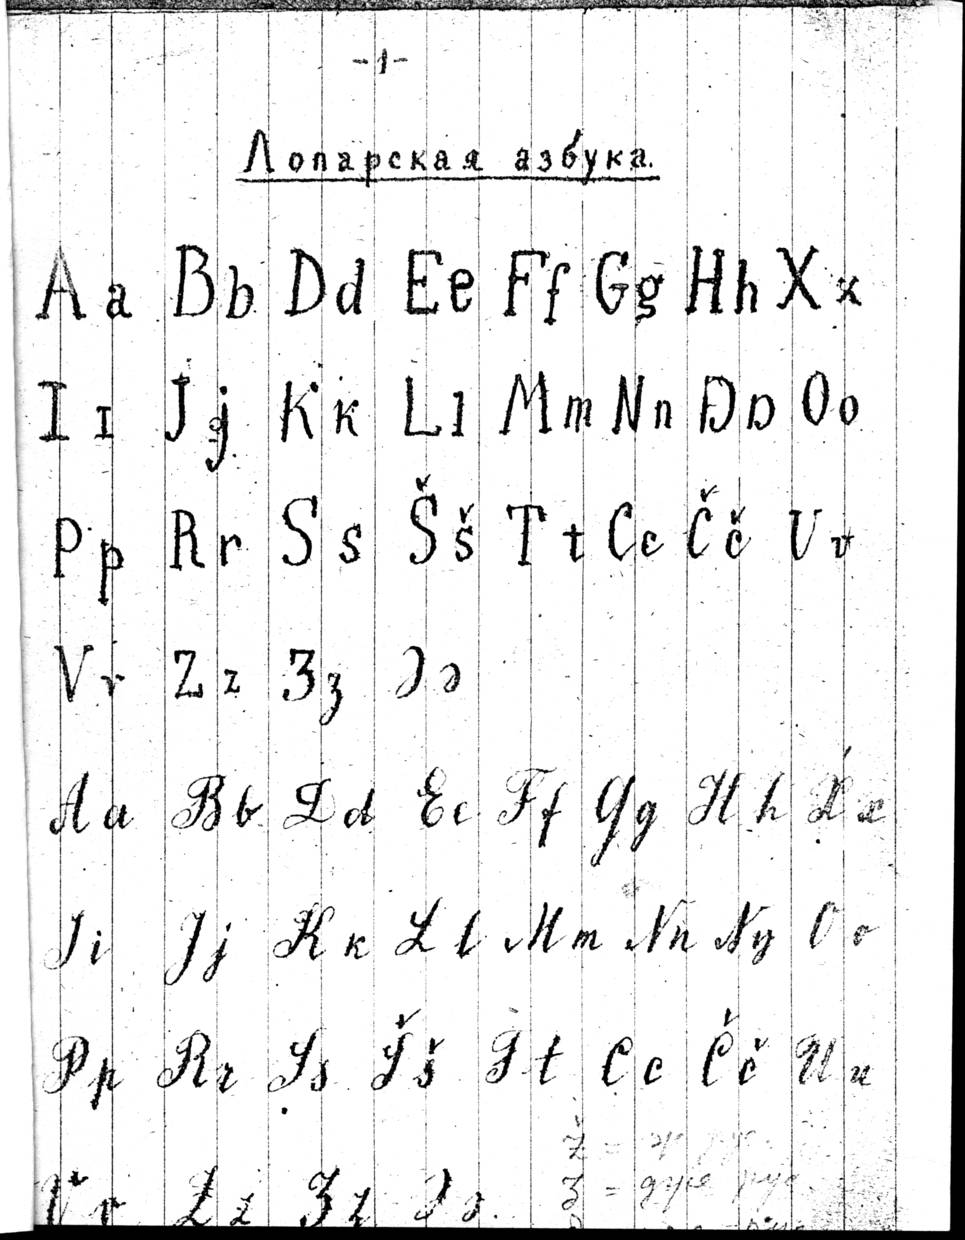 -1-
Лопарская азбука.
A a B b D d E e F f G g H h X x
I ı J j K k L l M m N n Ŋ ŋ O o
P p R r S s Š š T t C c Č č U v
V v Z z Ʒ ʒ Ə ə
A a B b D d E e F f G g H h X x
I i J j K k L l M m N n Ŋ ŋ O o
P p R r S s Š š T t C c Č č U u
V v Z z Ʒ ʒ Ə ə.
Ž =
Ʒ =